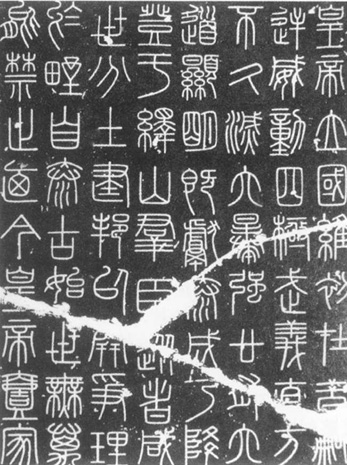 皇帝立國維初在昔嗣
逆威動四極武義直方
不久滅六暴強廿有六
道顯明既獻泰成乃降
登于繹山群臣從者咸
世分土建邦以開爭理
於野自泰古始世無萬
能禁止迺今皇帝壹家